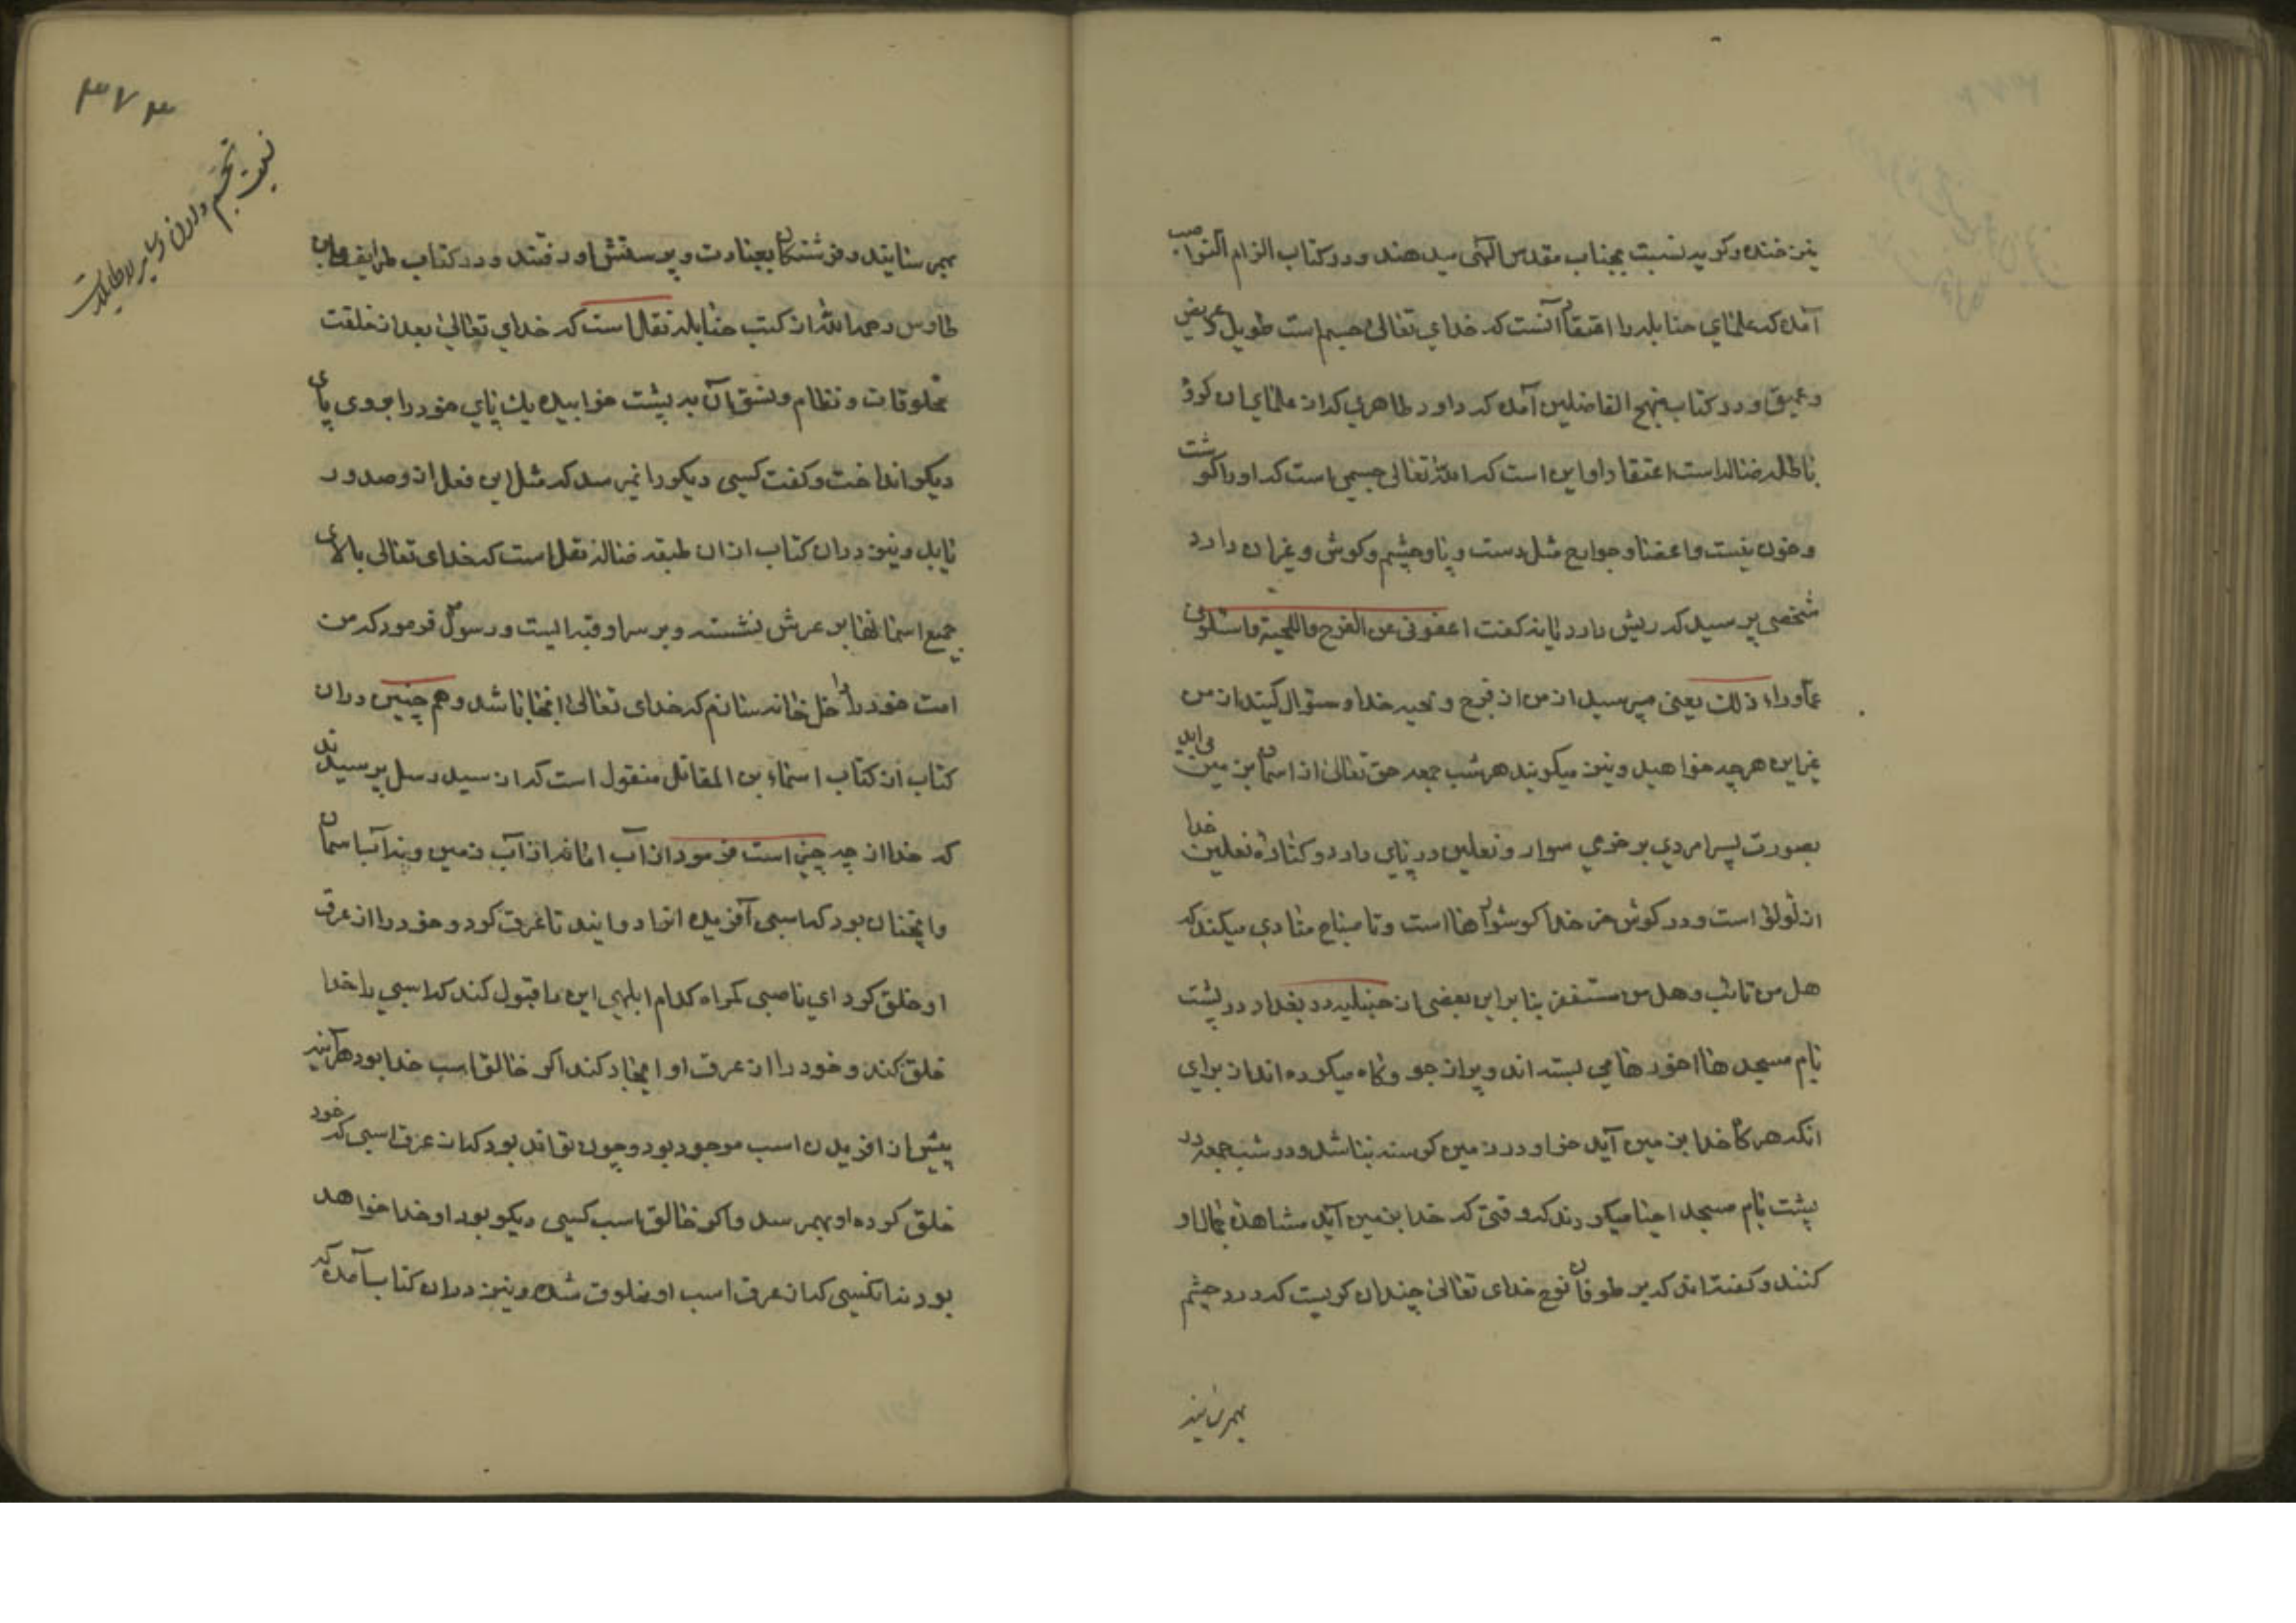 نیز خنده و کریه نسبت بجناب مقدس الهی میدهند و در کتاب الزام النواصب
آمده که علمای حنابله را اعتقاد آنست که خدای تعالی جسیم است طویل عریض
و عمیق و در کتاب منهج الفاضلین آمده که داود ظاهری که از علمای ان کروه
باطله ضاله است اعتقاد او این است که الله تعالی جسمی است که او را کوشت
و خون نیست و اعضا و جوارح مثل دست و پا و چشم و کوش و غیر ان دارد
شخصی پرسید که ریش دارد یا نه کفت اعفونی عن الفرج و اللحیة و اسئلونی
عما وراء ذلک یعنی مپرسید از من از فرج و لحیه خدا و سؤال کنید از من
غیر این هر چه خواهید و نیز میکویند هر شب جمعه حق تعالی از اسمان بزمین می اید
بصورت پسر امردی بر خری سوار و نعلین در پای دارد و کناره نعلین خدا
از لؤلؤ است و در کوش خر خدا کوشواره ها است و تا صباح منادی میکند که
هل من تائب و هل من مستغفر بنابراین بعضی از حنبلیه در بغداد در پشت
بام مسجد ها اخورها می بسته اند و پر از جو و کاه میکرده اند از برای
انکه هر کاه خدا بزمین آید خر او در زمین کرسنه نباشد و در شب جمعه در
پشت بام مسجد احیا میکردند که وقتی که خدا بزمین آید مشاهده جمال او
کنند و کفته اند که بر طوفان نوح خدای تعالی چندان کریست که درد چشم
بهمرسانید
۳۷۳
نسبت تجسم دادن اکابر
بهمرسانید و فرشتکان بعیادت و پرسشش او رفتند و در کتاب طرایف ابن
طاوس رحمه الله از کتب حنابله نقل است که خدای تعالی بعد از خلقت
مخلوقات و نظام و نسق ان به پشت خوابیده یک پای خود را بروی پای
دیکر انداخت و کفت کسی دیکر را نمیرسد که مثل این فعل از و صدور
یابد و نیز در ان کتاب از ان طبقه ضاله نقل است که خدای تعالی بالای
جمیع اسمانها بر عرش نشسته و بر سر او قبه ایست و رسول فرمود که من
امت خود را داخل خانه سازم که خدای تعالی انجا باشد و هم چنین در ان
کتاب از کتاب اسماء بن المقاتل منقول است که از سید رسل پرسیدند
که خدا از چه چیز است فرمود از آب اما نه از آب زمین و نه آب اسمان
و انچنان بود که اسبی آفریده انرا دوانید تا عرق کرد و خود را از عرق
او خلق کرد ای ناصبی کمراه کدام ابلهی این را قبول کند که اسبی را خدا
خلق کند و خود را از عرق او ایجاد کند اکر خالق اسب خدا بود هر آینه
پیش از افریدن اسب موجود بود و چون تواند بود که از عرق اسبی که خود
خلق کرده او بهمرسد و اکر خالق اسب کسی دیکر بود او خدا خواهد
بود نه انکسی که از عرق اسب او مخلوق شده و نیز در ان کتاب آمده که